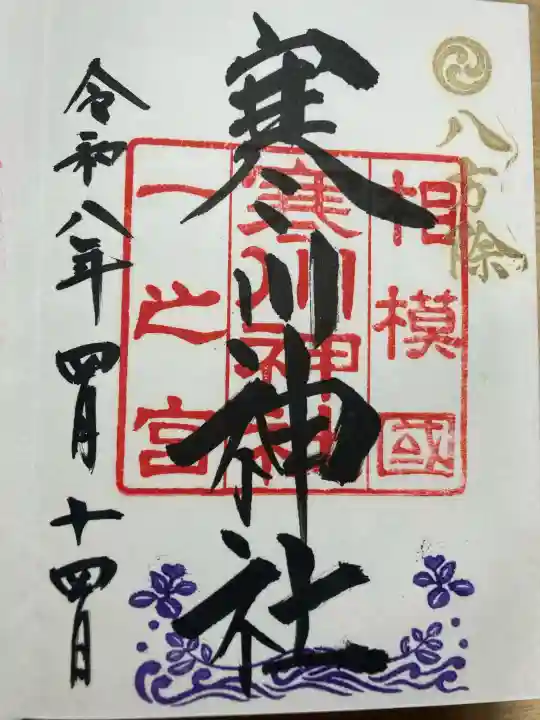 八方除
相模國
寒川神社
一之宮
寒川神社
令和八年四月十四日